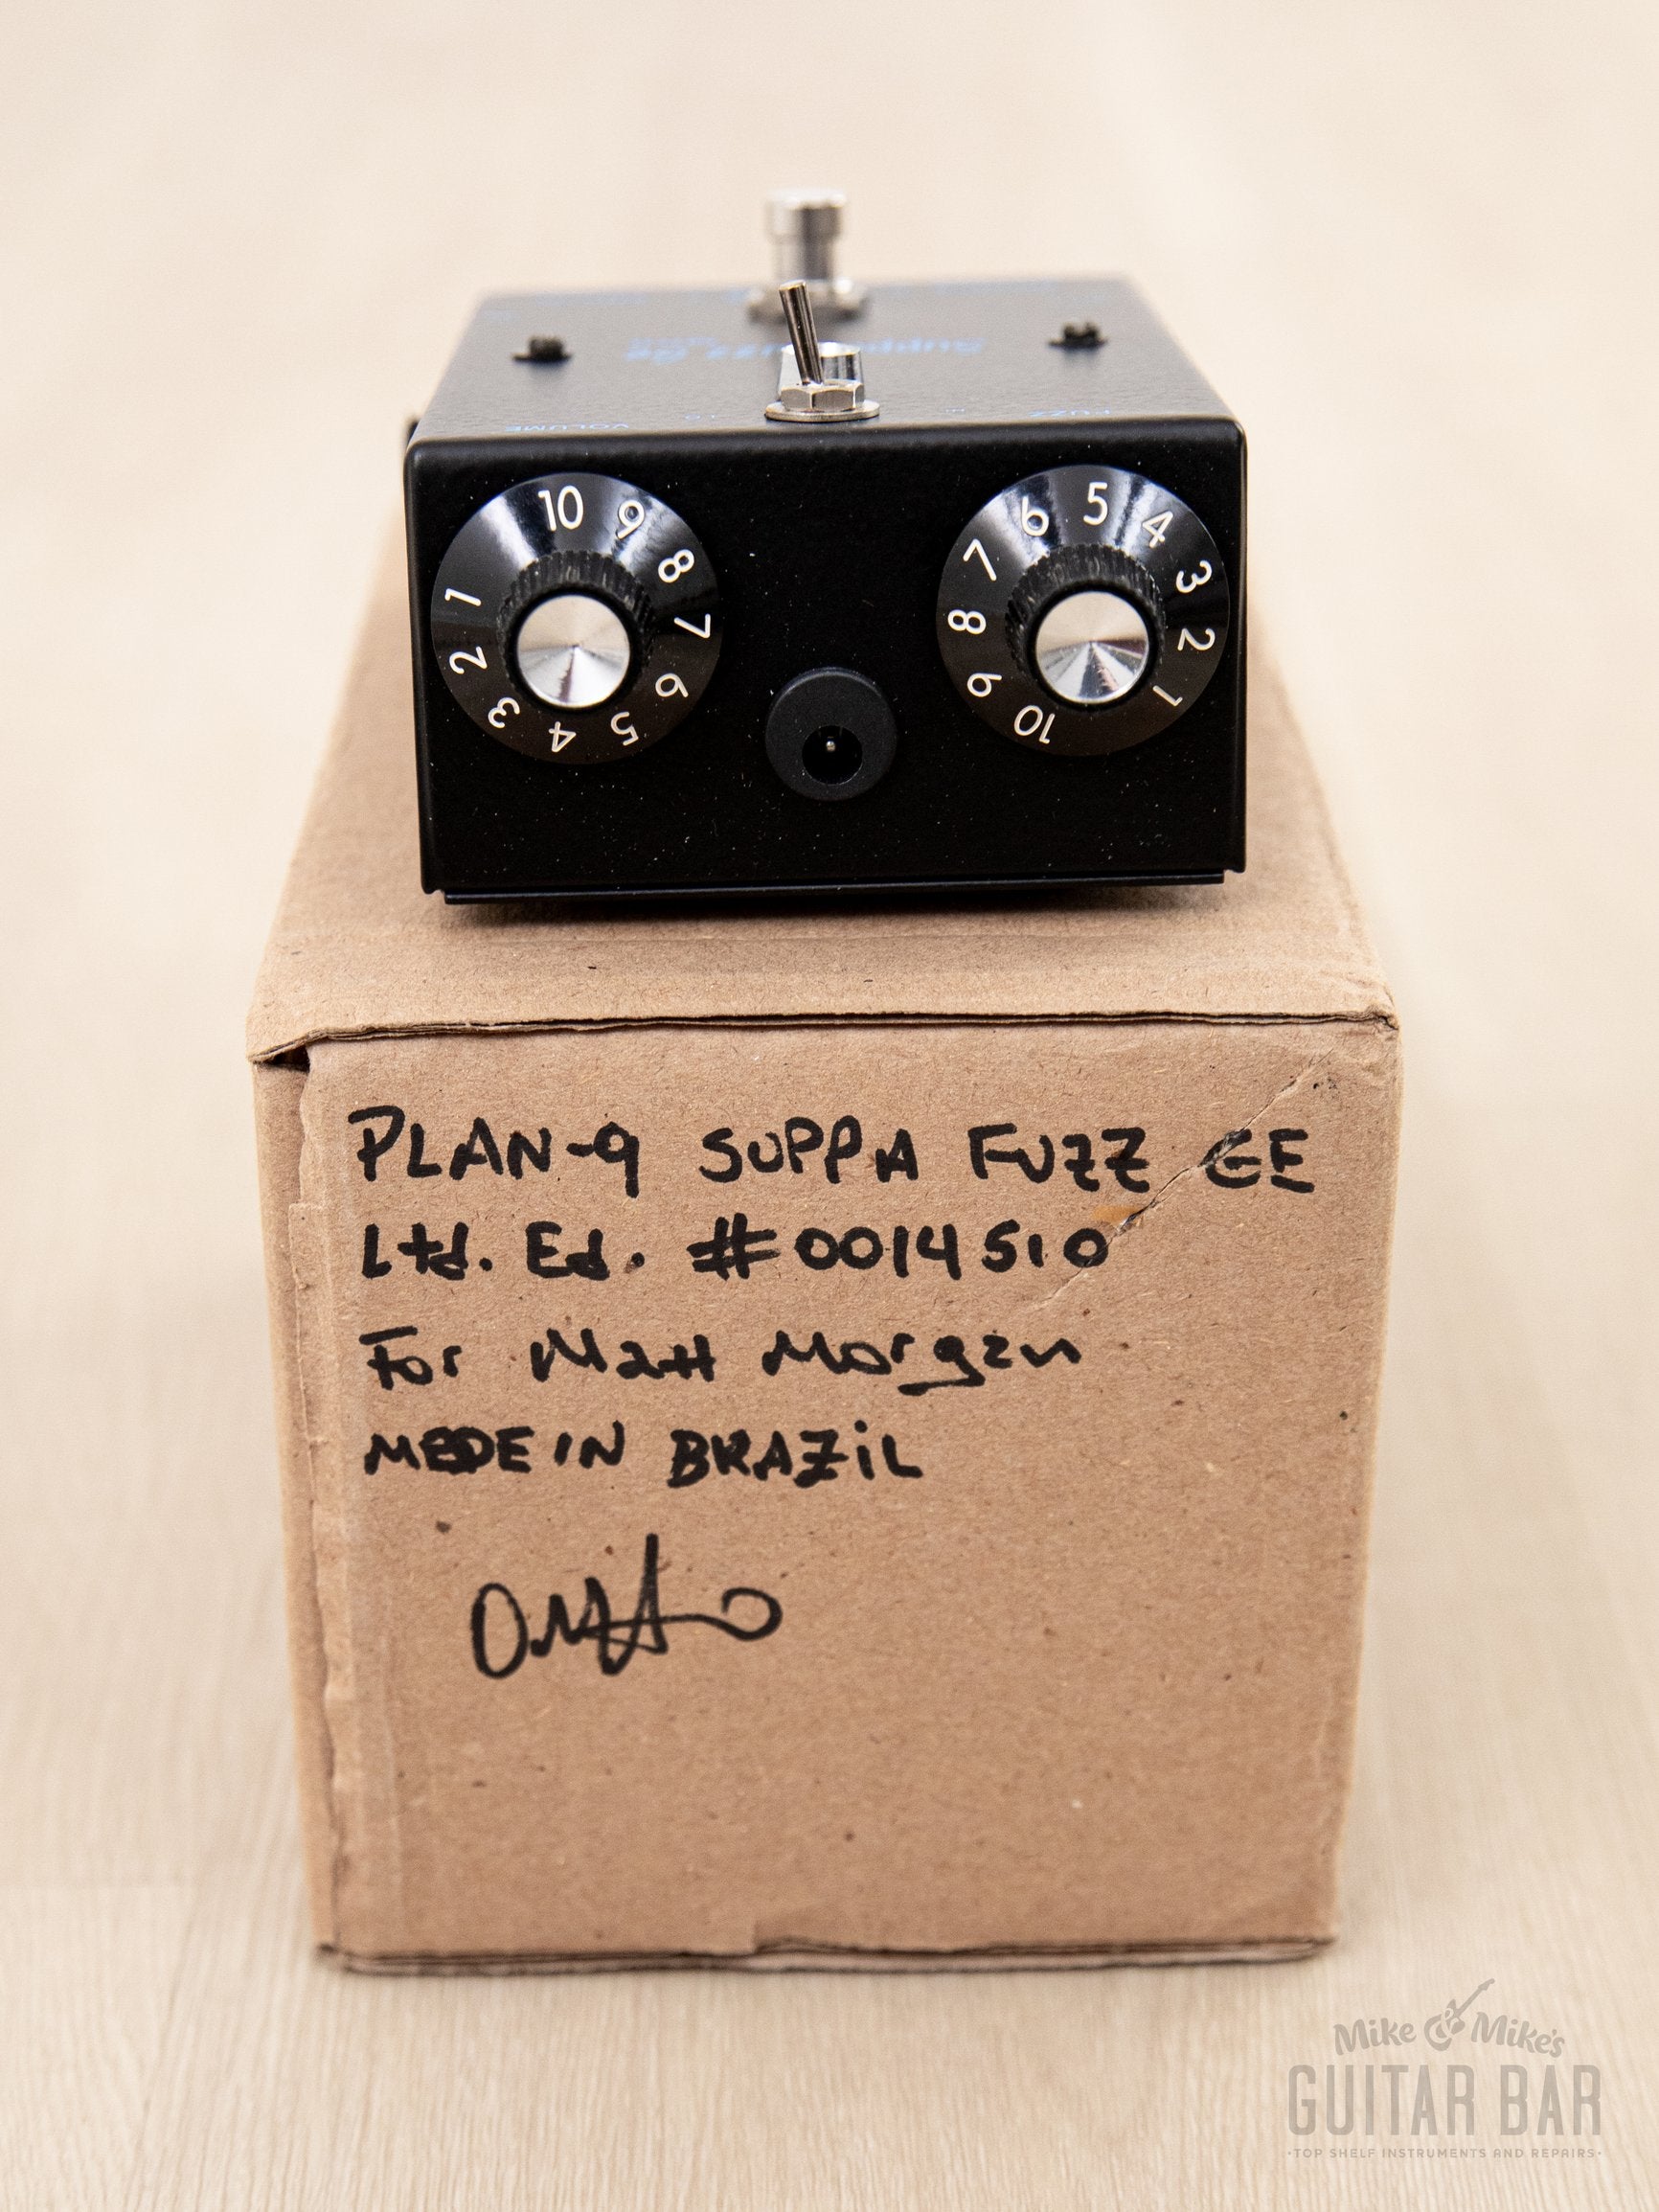 Suppa Fuzz Ge
VOLUME
FUZZ
10 9 8 7 6 5 4 3 2 1
6 5 4 3 2 1 10 9 8 7
PLAN-9 SUPPA FUZZ GE
Ltd. Ed. #0014510
For Matt Morgan
MEDE IN BRAZiL
Mike & Mike's
GUITAR BAR
·TOP SHELF INSTRUMENTS AND REPAIRS·